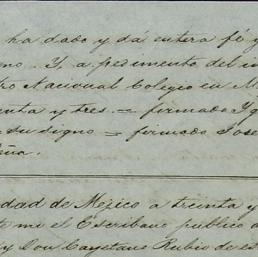 ha dado y dá entera fé y
no. Y, a pedimento del in
tro Nacional Colegio en M
enta y tres. = firmado Yg
= Su signo = firmado Jose
ña.
dad de México a treinta y
te mi el Escribano publico
y Don Cayetano Rubio de es